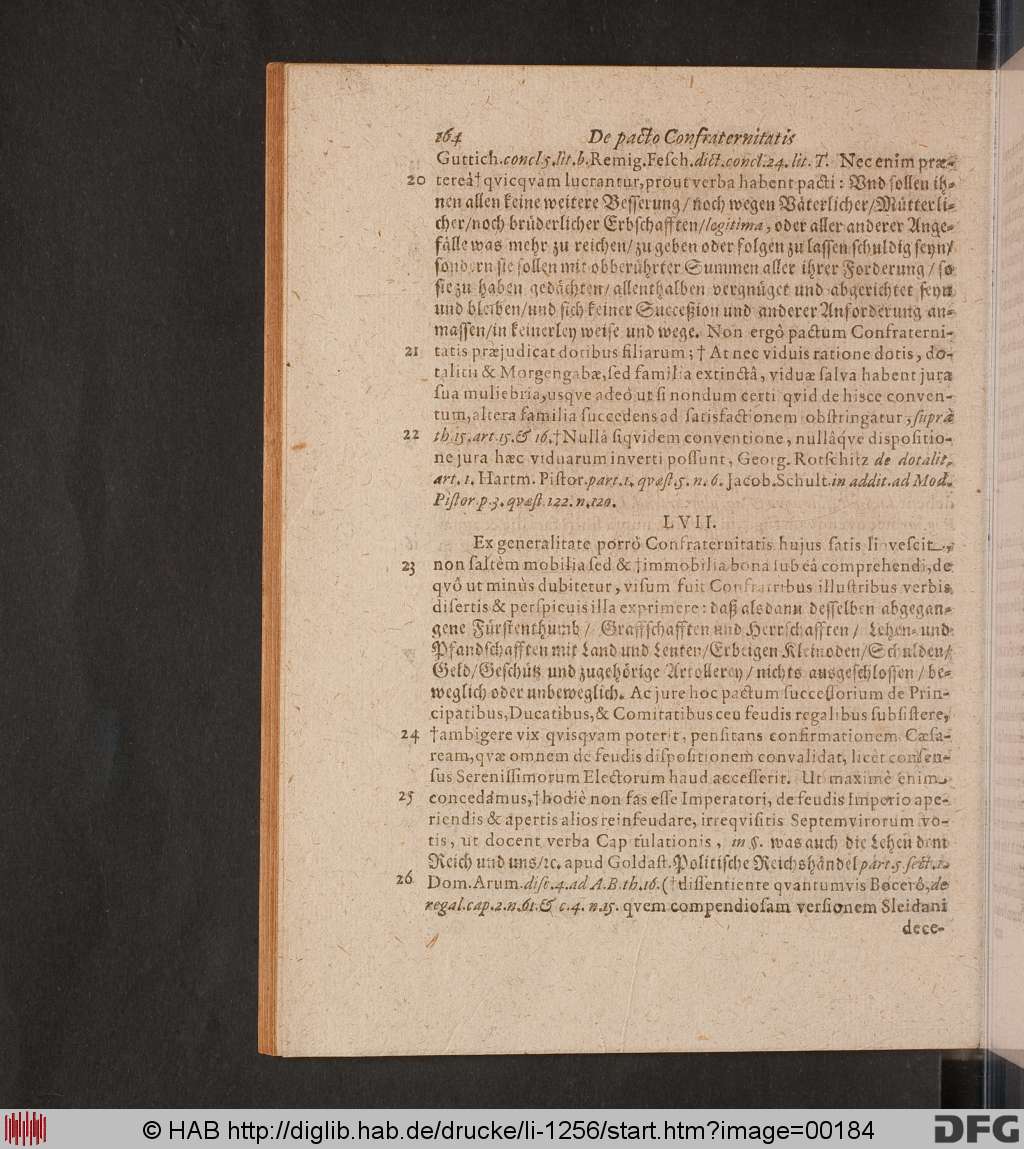 164 De pacto Confraternitatis
Guttich.concl.5.lit.b.Remig.Fesch.dict.concl.24.lit.T. Nec enim præ-
20 tereà† qvicqvam lucrantur, prout verba habent pacti: Vnd sollen ih-
nen allen keine weitere Besserung/ noch wegen Väterlicher/Mütterli-
cher/noch brüderlicher Erbschafften/legitima, oder aller anderer Ange-
fälle was mehr zu reichen/ zu geben oder folgen zu lassen schuldig seyn/
sondern sie sollen mit obberührter Summen aller ihrer Forderung/ so
sie zu haben gedächten/ allenthalben vergnüget und abgerichtet seyn
und bleiben/und sich keiner Succeßion und anderer Anforderung an-
massen/in keinerley weise und wege. Non ergò pactum Confraterni-
21 tatis præjudicat dotibus filiarum; † At nec viduis ratione dotis, do-
talitii & Morgengabæ, sed familia extinctâ, viduæ salva habent jura
sua muliebria, usqve adeò ut si nondum certi qvid de hisce conven-
tum, altera familia succedens ad satisfactionem obstringatur, suprà
22 th.15.art.15.& 16.† Nullâ siqvidem conventione, nullâqve dispositio-
ne jura hæc viduarum inverti possunt, Georg. Rotschitz de dotalit.
art. 1. Hartm. Pistor.part.1. qvæst.5. n. 6. Jacob.Schult.in addit.ad Mod.
Pistor.p.3. qvæst.122. n.120.
LVII.
Ex generalitate porrò Confraternitatis hujus satis liqvescit,
23 non saltèm mobilia sed & †immobilia bona sub eâ comprehendi, de
qvô ut minùs dubitetur, visum fuit Confratribus illustribus verbis
disertis & perspicuis illa exprimere: daß alsdann desselben abgegan-
gene Fürstenthumb/ Graffschafften und Herrschafften/ Lehen- und
Pfandschafften mit Land und Leuten/Erbeigen Kleinoden/Schulden/
Geld/Geschütz und zugehörige Artollerey/ nichts ausgeschlossen/ be-
weglich oder unbeweglich. Ac jure hoc pactum successorium de Prin-
cipatibus, Ducatibus, & Comitatibus ceu feudis regalibus subsistere,
24 †ambigere vix qvisqvam poterit, pensitans confirmationem Cæsa-
ream, qvæ omnem de feudis dispositionem convalidat, licèt consen-
sus Serenissimorum Electorum haud accesserit. Ut maximè enim
25 concedamus, †hodiè non fas esse Imperatori, de feudis Imperio ape-
riendis & apertis alios reinfeudare, irreqvisitis Septemvirorum vo-
tis, ut docent verba Capitulationis, in §. was auch die Lehen dem
Reich und uns/ꝛc. apud Goldast. Politische Reichshändel part.5.sect.1.
26 Dom. Arum.disc.4.ad A.B.th.16.(†dissentiente qvantumvis Bocerô, de
regal.cap.2.n.61.& c.4. n.15. qvem compendiosam versionem Sleidani
dece-
© HAB http://diglib.hab.de/drucke/li-1256/start.htm?image=00184
DFG